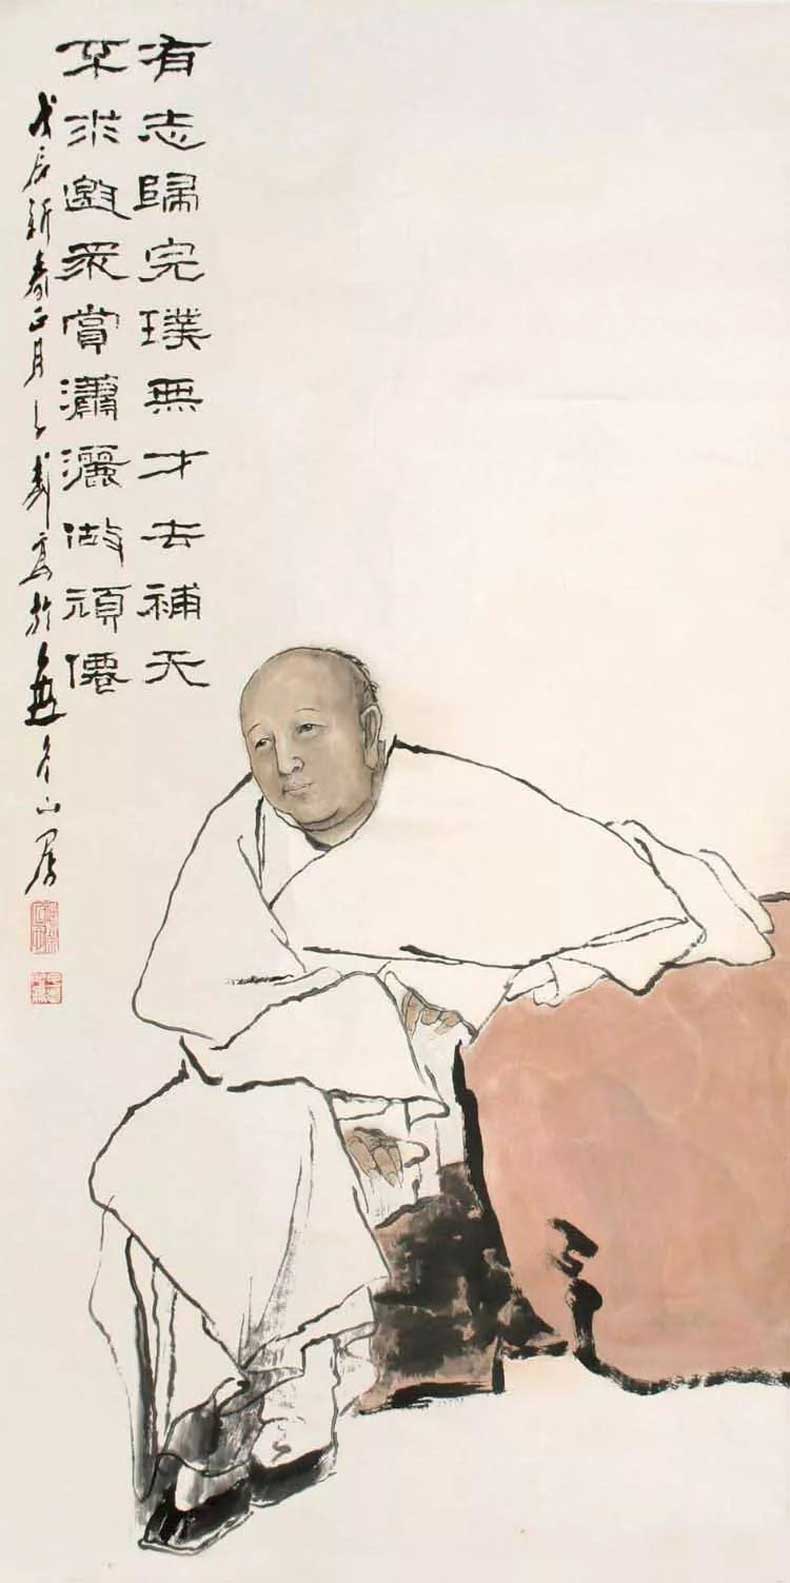 有志歸完璞無才去補天
不求邀眾賞瀟灑做頑僊
戊辰新春正月寫於山居